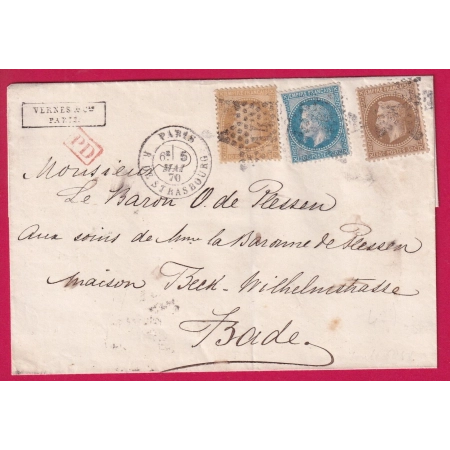 VERNES & Cie
PARIS.
PD
PARIS
6E 5
MAI
70
R. DE STRASBOURG
EMPIRE FRANÇAIS
Monsieur
Le Baron O. de Plessen
aux soins de Mme la Baronne de Plessen
maison Beck - Wilhelmstrasse
Bade.